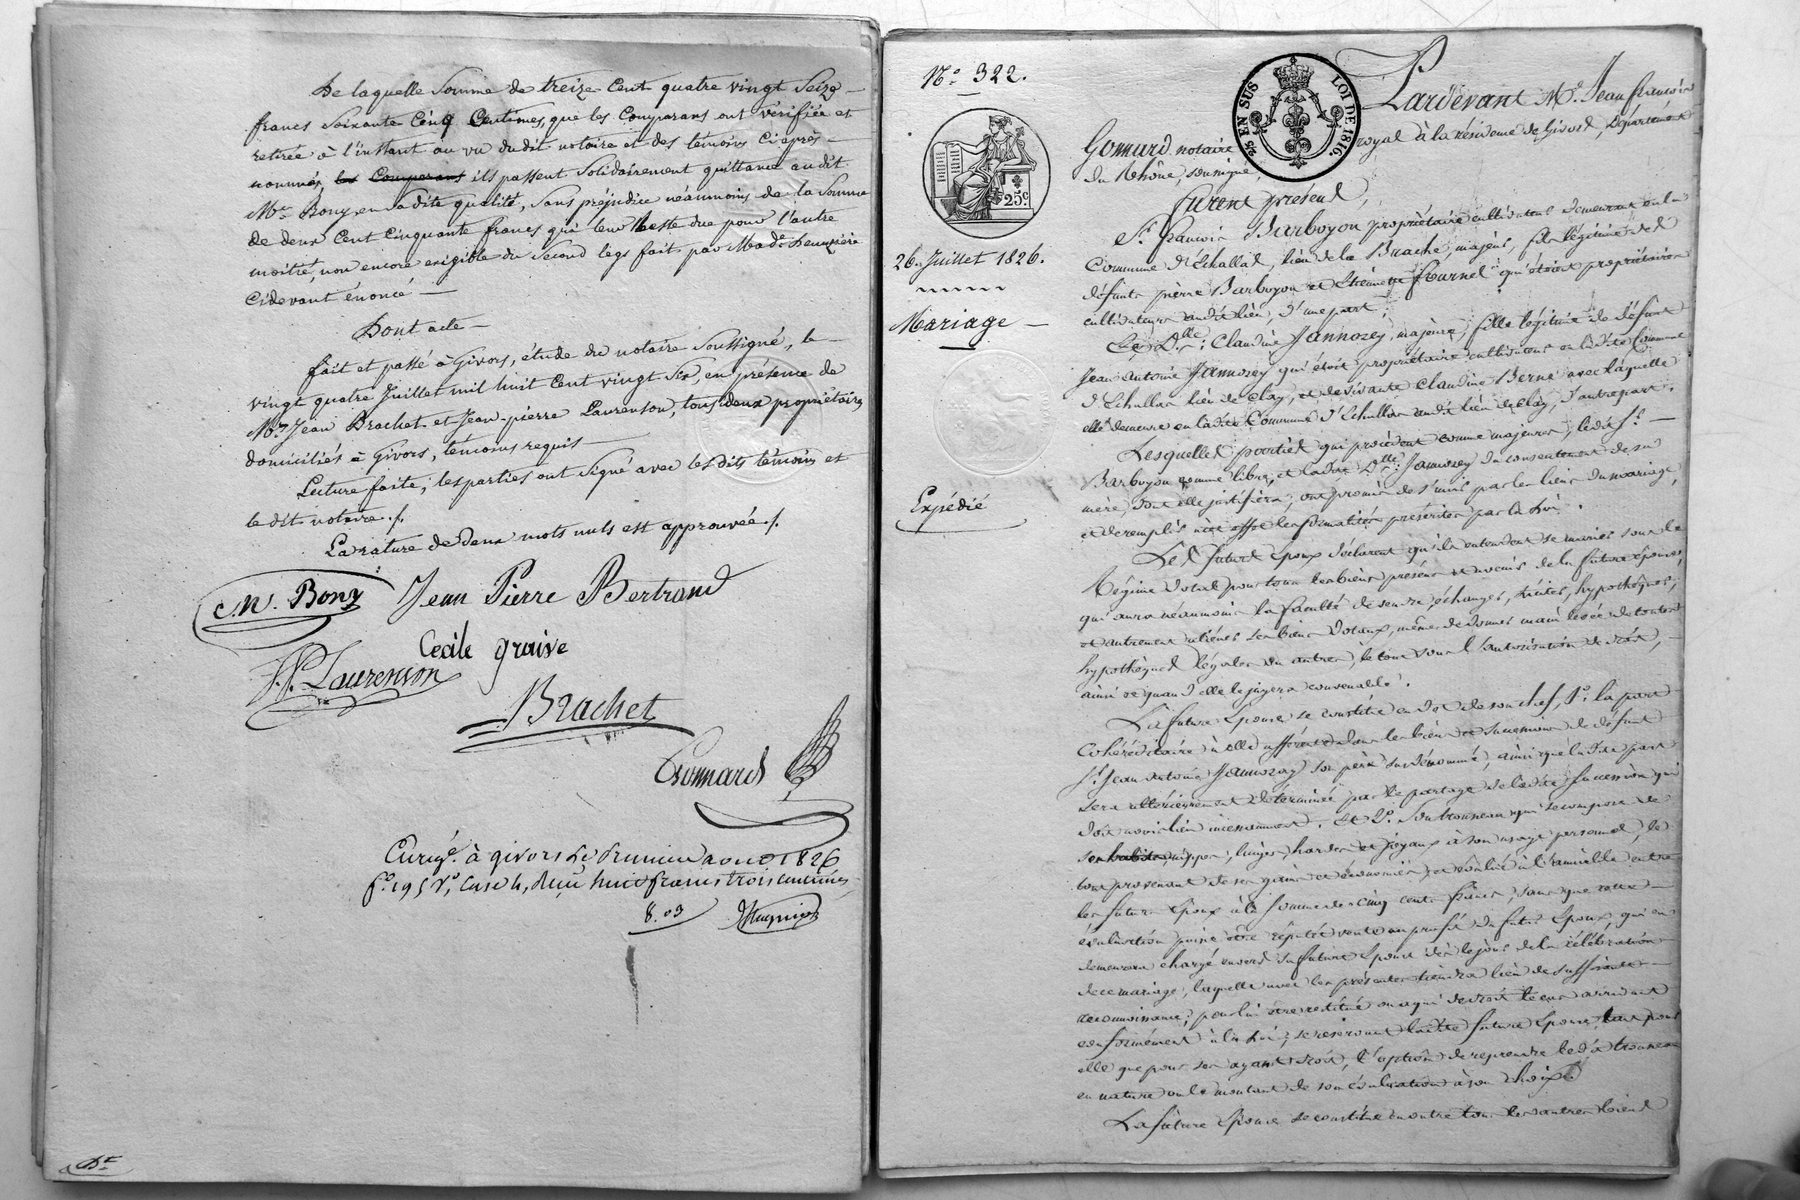 De laquelle somme de treize cent quatre vingt seize
francs soixante cinq centimes, que les comparans ont vérifiée et
retirée à l'instant au vu du dit notaire et des témoins ci après
nommés, les comparans ils passent solidairement quittance au dit
Me. Bony, en sa dite qualité, sans préjudice néanmoins de la somme
de deux cent cinquante francs qui leur reste due pour l'autre
moitié, non encore exigible du second legs fait par Made.
cidevant énoncé —
Dont acte —
fait et passé à Givors, étude du notaire soussigné, le
vingt quatre Juillet mil huit cent vingt six, en présence de
Mrs. Jean Brachet et Jean-pierre Laurenson, tous deux propriétaires
domiciliés à Givors, témoins requis —
Lecture faite, les parties ont signé avec les dits témoins et
le dit notaire ./.
La rature de deux mots nuls est approuvée ./.
M. Bony Jean Pierre Bertrand
Cecile graive
J.P. Laurenson
Brachet
Gomard
Enregé. à givors le premier aout 1826
fo. 195 Vo. Case 4, reçu huit francs trois centimes
8.03
No. 322.
25c
EN SUS
LOI DE 1816.
26. Juillet 1826.
Mariage —
Expédié
Pardevant Me. Jean françois
Gomard notaire royal à la résidence de Givors, département
du Rhône, soussigné,
furent présens,
Sr. françois Barboyon propriétaire cultivateur demeurant en la
commune d'Echallas, lieu de la Brache, majeur, fils légitime des
défunts pierre Barboyon et Etiennette fournel qu'étoient propriétaires
cultivateurs audit lieu, d'une part;
Et Dlle. Claudine Jannozey, majeure, fille légitime de défunt
Jean Antoine Jannozey qui étoit propriétaire cultivateur en ladite commune
d'Echallas lieu de clay, et de vivante Claudine Berne avec laquelle
elle demeure en ladite commune d'Echallas audit lieu de clay, d'autre part.
Lesquelles parties qui procèdent comme majeures, ledit Sr. —
Barboyon comme libre, et ladite Dlle. Jannozey du consentement de sa
mère, dont elle justifiera, ont promis de s'unir par les liens du mariage,
et de remplir à cet effet les formalités prescrites par la Loi.
Les futurs Epoux déclarent qu'ils entendent se marier sous le
Régime dotal pour tous les biens présens et avenir de la future épouse,
qui aura néanmoins la faculté de vendre, échanger, traiter, hypothéquer,
et autrement aliéner ses biens dotaux, même de donner main levée de toutes
hypothèques légales ou autres, le tout sous l'autorisation de droit, —
ainsi et quand elle le jugera convenable.
La future Epouse se constitue en dot de son chef, 1o. la part
cohéréditaire à elle afférente dans les biens et succession de défunt
Sr. Jean Antoine Jannozey son père susdénommé, ainsi que ladite part
sera ultérieurement déterminée par le partage de ladite succession qui
doit avoir lieu incessamment. Et 2o. Son trousseau qui se compose de
ses habits nippes, linges, hardes et joyaux à son usage personnel, le
tout provenant de ses gains et économies, et évalué à l'amiable entre
les futurs Epoux à la somme de cinq cents francs, sans que cette —
évaluation puisse être réputée vente au profit du futur Epoux, qui en
demeurera chargé envers sa future Epouse dès le jour de la célébration
de ce mariage, laquelle avec les présentes tiendra lieu de suffisante —
reconnoissance, pour lui être restitué ou à qui de droit le cas arrivant
conformément à la Loi, se réservant ladite future Epouse, tant pour
elle que pour ses ayant droit, l'option de reprendre ledit trousseau
en nature ou le montant de son évaluation à son choix.
La future Epouse se constitue en outre tous les autres biens